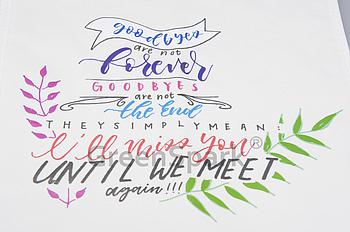 goodbyes
are not
forever
GOODBYES
are not
the End
THEY SIMPLY MEAN:
I'll miss you
GreenSpark®
UNTIL WE MEET
again!!!